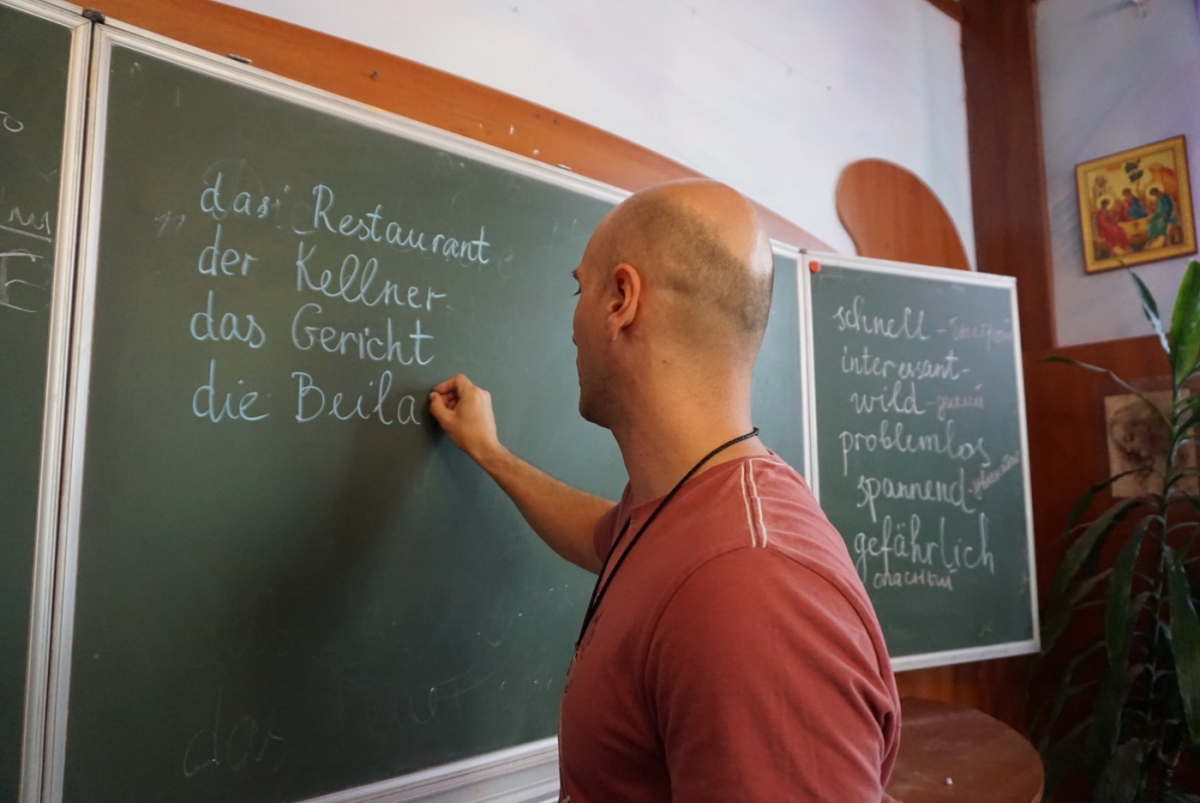 das Restaurant
der Kellner
das Gericht
die Beila
schnell -
interessant-
wild - дикий
problemlos
spannend-
gefährlich
опасный
das